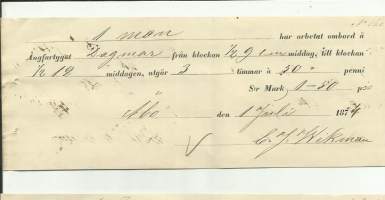 1 man har arbetat ombord å
Ångfartyget Dagmar från klockan kl 9 em middag, till klockan
kl 12 middagen, utgör 3 timmar à 50 " penni
S:r Mark 1-50 p:ni
Åbo den 1 Juli 1874
C. J. Wikman